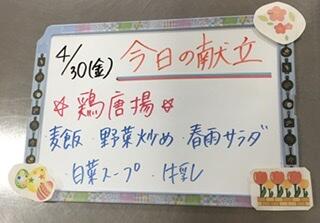 4/30(金) 今日の献立
☆ 鶏唐揚 ☆
麦飯 ・ 野菜炒め ・ 春雨サラダ
・白菜スープ ・ 牛乳